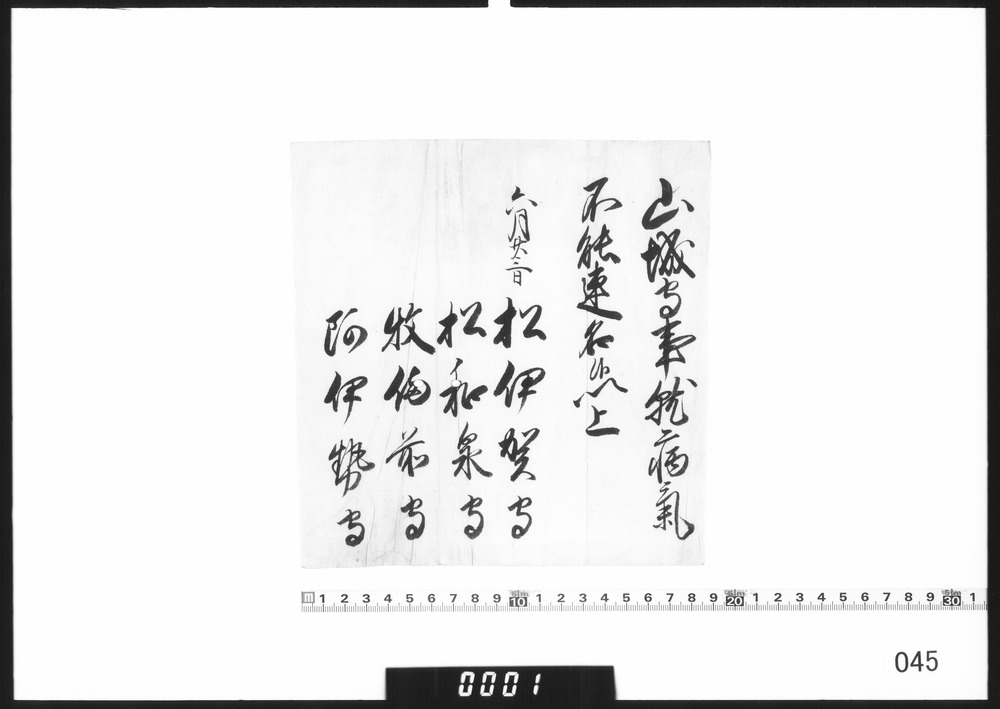 山城守事就病氣
不能連名候以上
六月廿三日
松伊賀守
松和泉守
牧備前守
阿伊勢守
m 1 2 3 4 5 6 7 8 9 10 1 2 3 4 5 6 7 8 9 20 1 2 3 4 5 6 7 8 9 30 1
045
0001